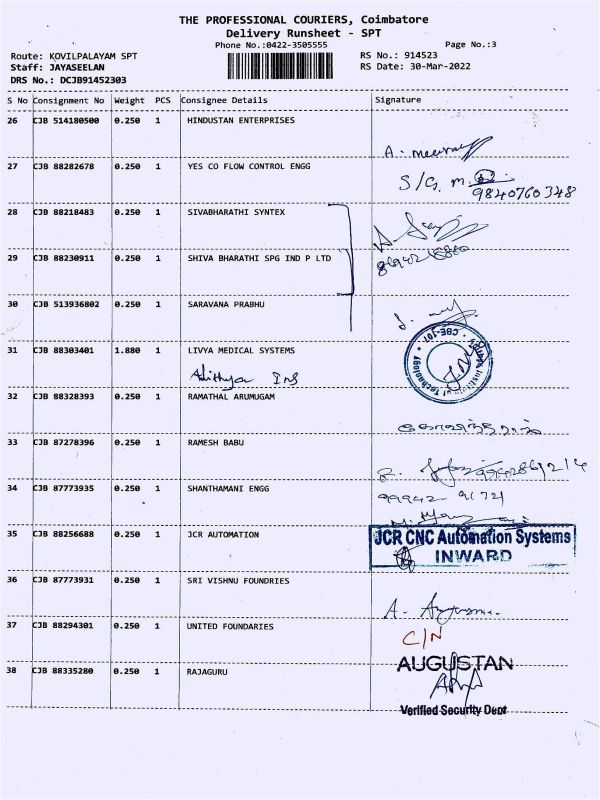 THE PROFESSIONAL COURIERS, Coimbatore
Delivery Runsheet - SPT
Phone No.:0422-3505555
Page No.:3
Route: KOVILPALAYAM SPT
RS No.: 914523
Staff: JAYASEELAN
RS Date: 30-Mar-2022
DRS No.: DCJB91452303
S No Consignment No Weight PCS Consignee Details Signature
26 CJB 514180500 0.250 1 HINDUSTAN ENTERPRISES
27 CJB 88282678 0.250 1 YES CO FLOW CONTROL ENGG
9840760348
28 CJB 88218483 0.250 1 SIVABHARATHI SYNTEX
29 CJB 88230911 0.250 1 SHIVA BHARATHI SPG IND P LTD
30 CJB 513936802 0.250 1 SARAVANA PRABHU
31 CJB 88303401 1.880 1 LIVYA MEDICAL SYSTEMS
Adithya Ins
32 CJB 88328393 0.250 1 RAMATHAL ARUMUGAM
33 CJB 87278396 0.250 1 RAMESH BABU
34 CJB 87773935 0.250 1 SHANTHAMANI ENGG
99942 91721
35 CJB 88256688 0.250 1 JCR AUTOMATION
JCR CNC Automation Systems
INWARD
36 CJB 87773931 0.250 1 SRI VISHNU FOUNDRIES
37 CJB 88294301 0.250 1 UNITED FOUNDARIES
C/N
38 CJB 88335280 0.250 1 RAJAGURU
AUGUSTAN
Verified Security Dept